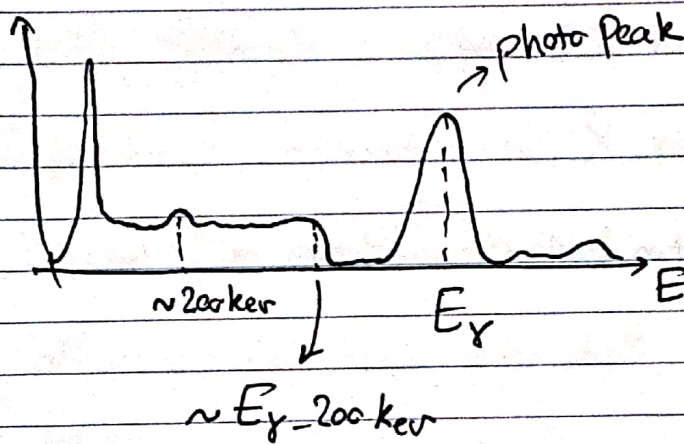 photo Peak
E
~200kev
Eγ
~ Eγ-200kev